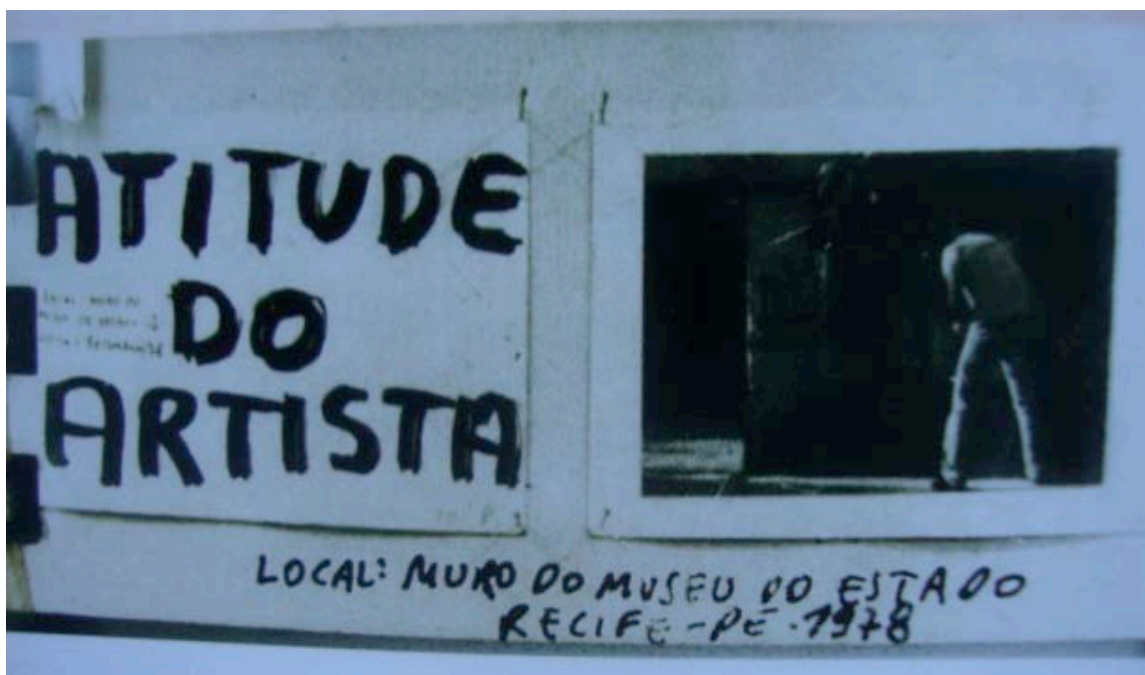 ATITUDE
DO
ARTISTA
LOCAL: MURO DO MUSEU DO ESTADO
RECIFE-PE-1978